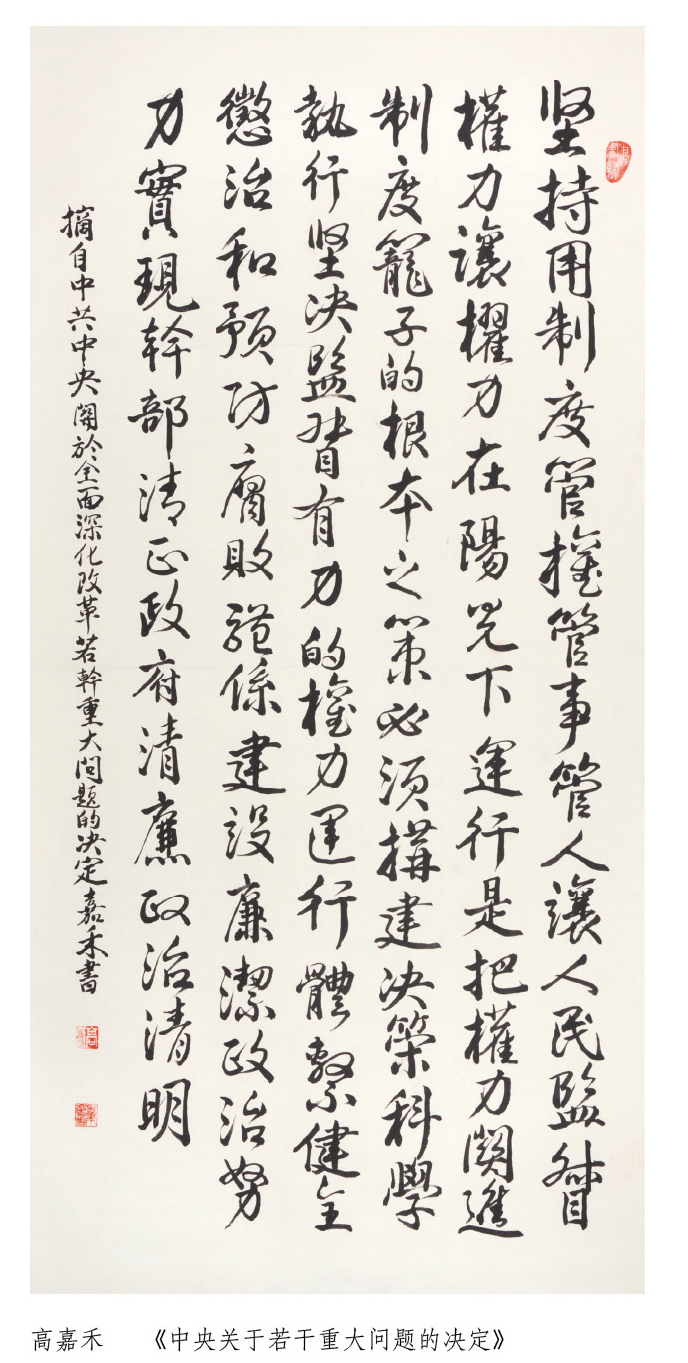 坚持用制度管權管事管人讓人民監督
權力讓權力在陽光下運行是把權力關進
制度籠子的根本之策必须構建决策科學
執行坚决監督有力的權力運行體繫健全
懲治和預防腐敗體係建設廉潔政治努
力實現幹部清正政府清廉政治清明
摘自中共中央關於全面深化改革若幹重大問題的决定嘉禾書
高嘉禾 《中央关于若干重大问题的决定》